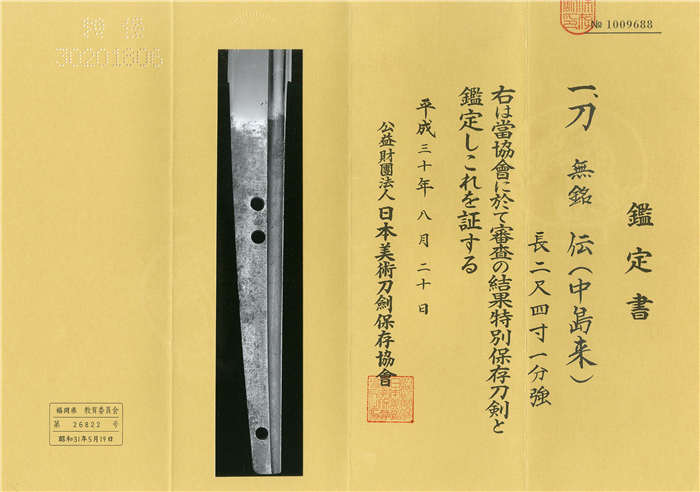 № 1009688
鑑定書
一、刀 無銘 伝(中島来)
長二尺四寸一分強
右は當協會に於て審査の結果特別保存刀剣と
鑑定しこれを証する
平成三十年八月二十日
公益財團法人 日本美術刀劍保存協會
30201806
福岡県 教育委員会
第 26822 号
昭和31年5月19日